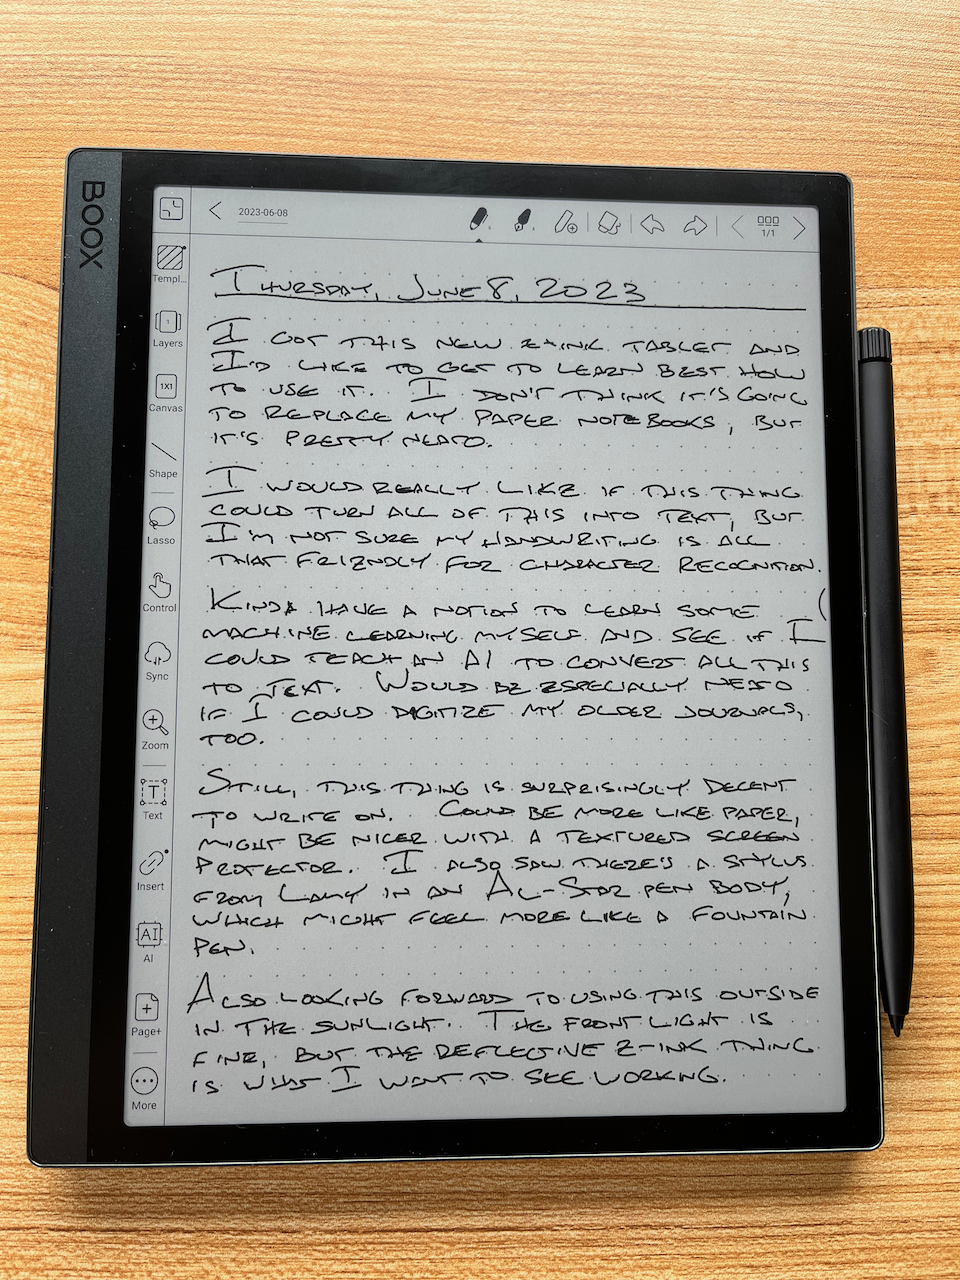 BOOX
2023-06-08
1/1
Templ...
Layers
1X1
Canvas
Shape
Lasso
Control
Sync
Zoom
T
Text
Insert
AI
AI
Page+
More
THURSDAY, JUNE 8, 2023
I GOT THIS NEW E-INK TABLET AND
I'D LIKE TO GET TO LEARN BEST HOW
TO USE IT. I DON'T THINK IT'S GOING
TO REPLACE MY PAPER NOTEBOOKS, BUT
IT'S PRETTY NEATO.
I WOULD REALLY LIKE IF THIS THING
COULD TURN ALL OF THIS INTO TEXT, BUT
I'M NOT SURE MY HANDWRITING IS ALL
THAT FRIENDLY FOR CHARACTER RECOGNITION.
KINDA HAVE A NOTION TO LEARN SOME
MACHINE LEARNING MYSELF AND SEE IF I
COULD TEACH AN AI TO CONVERT ALL THIS
TO TEXT. WOULD BE ESPECIALLY NEATO
IF I COULD DIGITIZE MY OLDER JOURNALS,
TOO.
STILL, THIS THING IS SURPRISINGLY DECENT
TO WRITE ON. COULD BE MORE LIKE PAPER,
MIGHT BE NICER WITH A TEXTURED SCREEN
PROTECTOR. I ALSO SAW THERE'S A STYLUS
FROM LAMY IN AN AL-STAR PEN BODY,
WHICH MIGHT FEEL MORE LIKE A FOUNTAIN
PEN.
ALSO LOOKING FORWARD TO USING THIS OUTSIDE
IN THE SUNLIGHT. THE FRONT LIGHT IS
FINE, BUT THE REFLECTIVE E-INK THING
IS WHAT I WANT TO SEE WORKING.